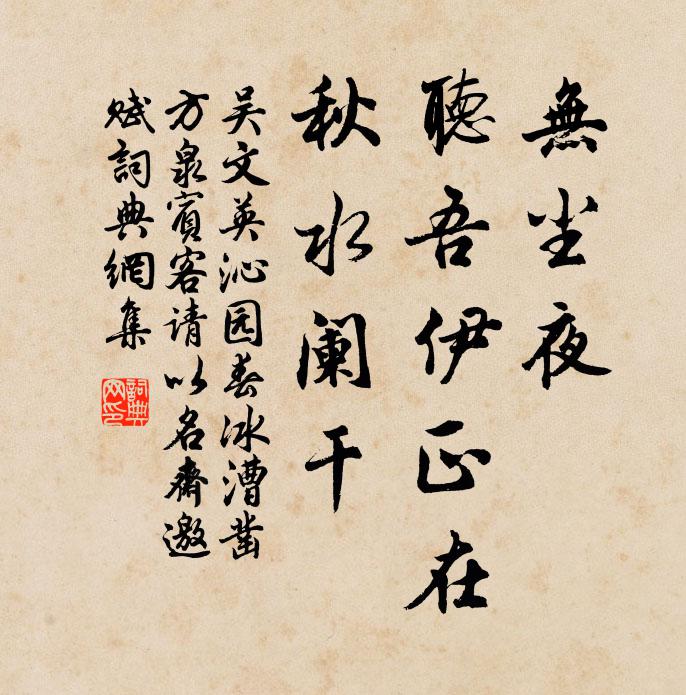 無尘夜
聽吾伊正在
秋水阑干
吴文英沁园春冰漕凿
方泉賓客请以名齋邀
赋詞典網集
詞典
网印